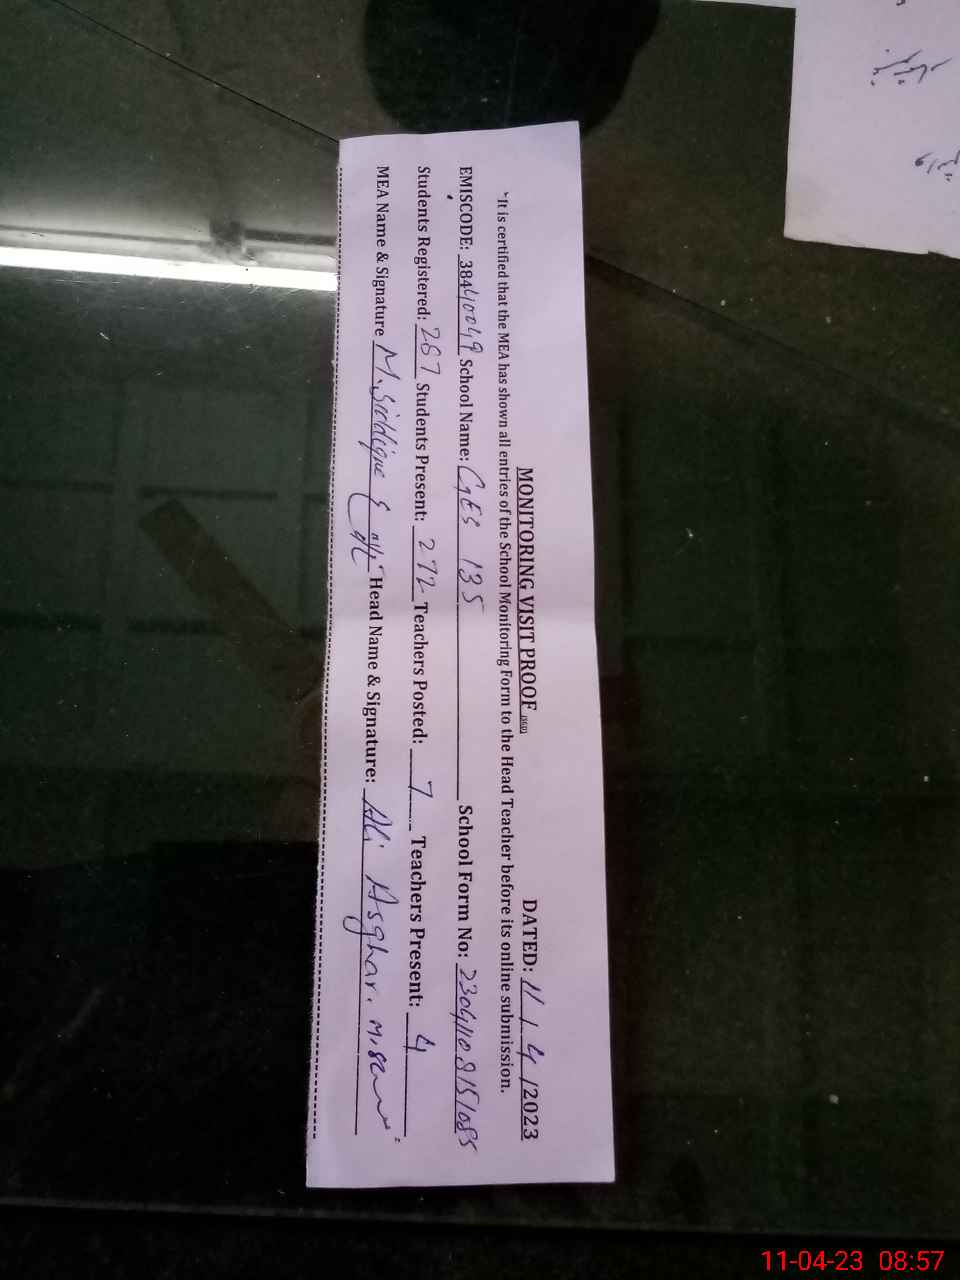 MONITORING VISIT PROOF (SGD) DATED: 11/4/2023
"It is certified that the MEA has shown all entries of the School Monitoring Form to the Head Teacher before its online submission.
EMISCODE: 38440049 School Name: GES 135 School Form No: 23041108151085
Students Registered: 287 Students Present: 272 Teachers Posted: 7 Teachers Present: 4
MEA Name & Signature M. Siddique Head Name & Signature: Ali Asghar.
11-04-23 08:57